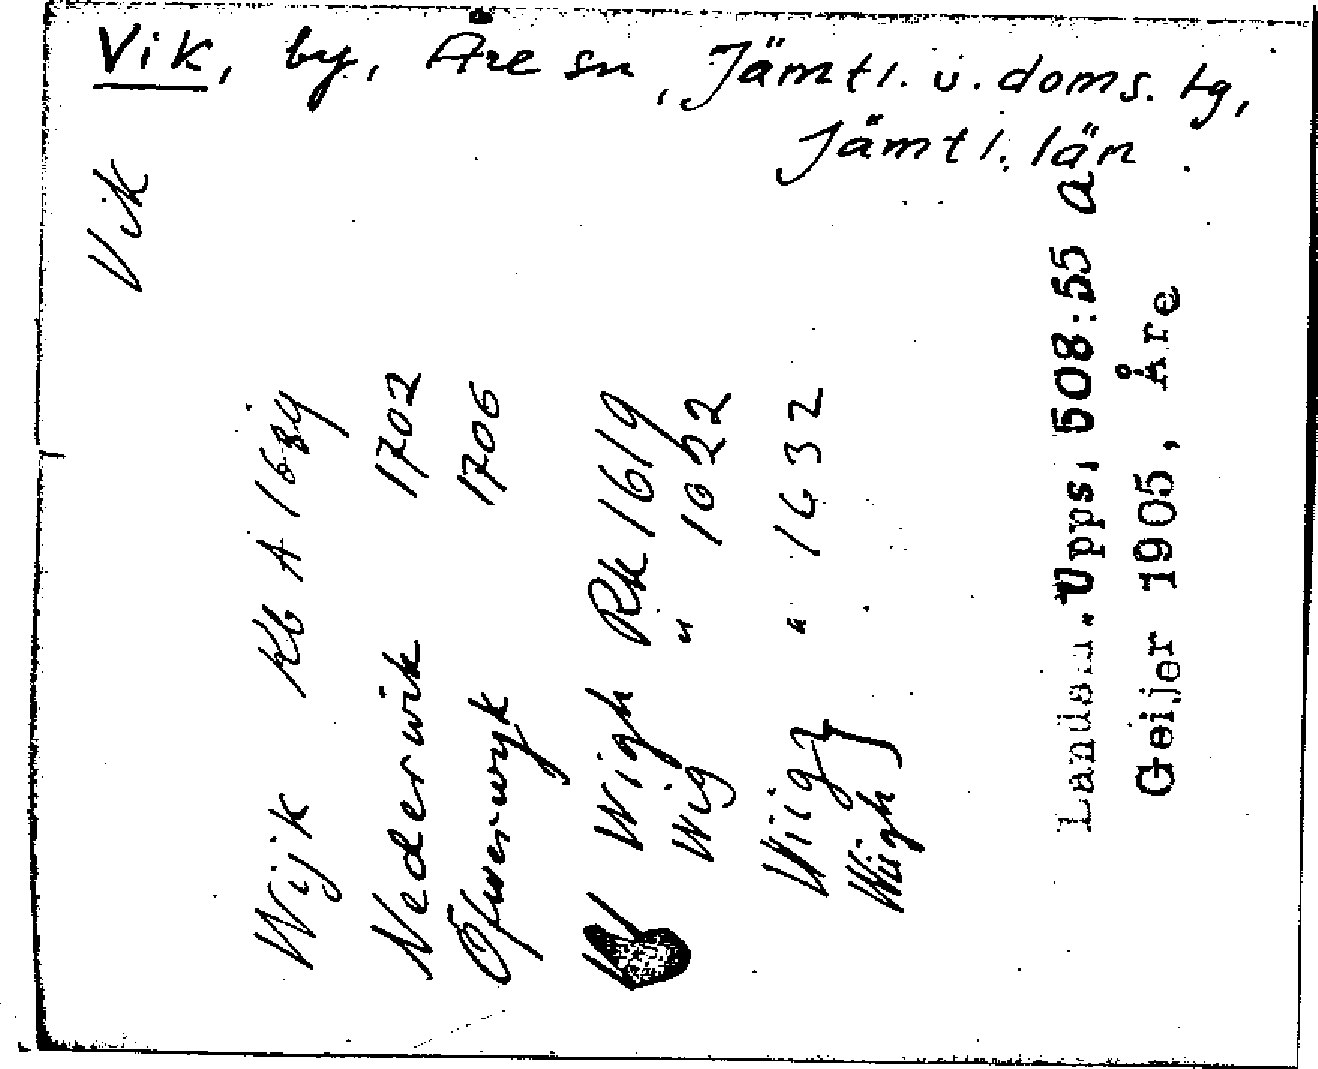 Vik, by, Åre sn, Jämtl. v. doms. tg,
Jämtl. län
Vik
Wijk Kb A 1689
Nederwik 1702
Öfwerwyk 1706
Wigh Rk 1619
Wig " 1622
Wiig " 1632
Wiigh
Landsm. Upps. 508:55 a
Geijer 1905, Åre